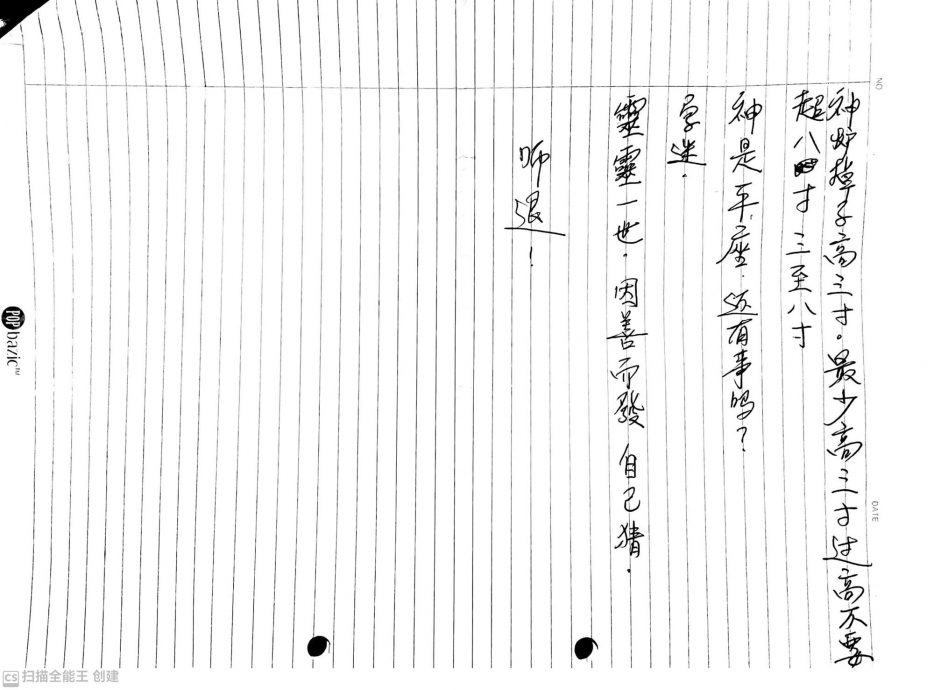 神炉掉子高三寸。最少高三寸过高不要
超八寸三至八寸
神是平座.还有事吗?
字迷.
靈靈一世.因善而發自己猜.
师退!
NO
DATE
POP bazic™
CS 扫描全能王 创建